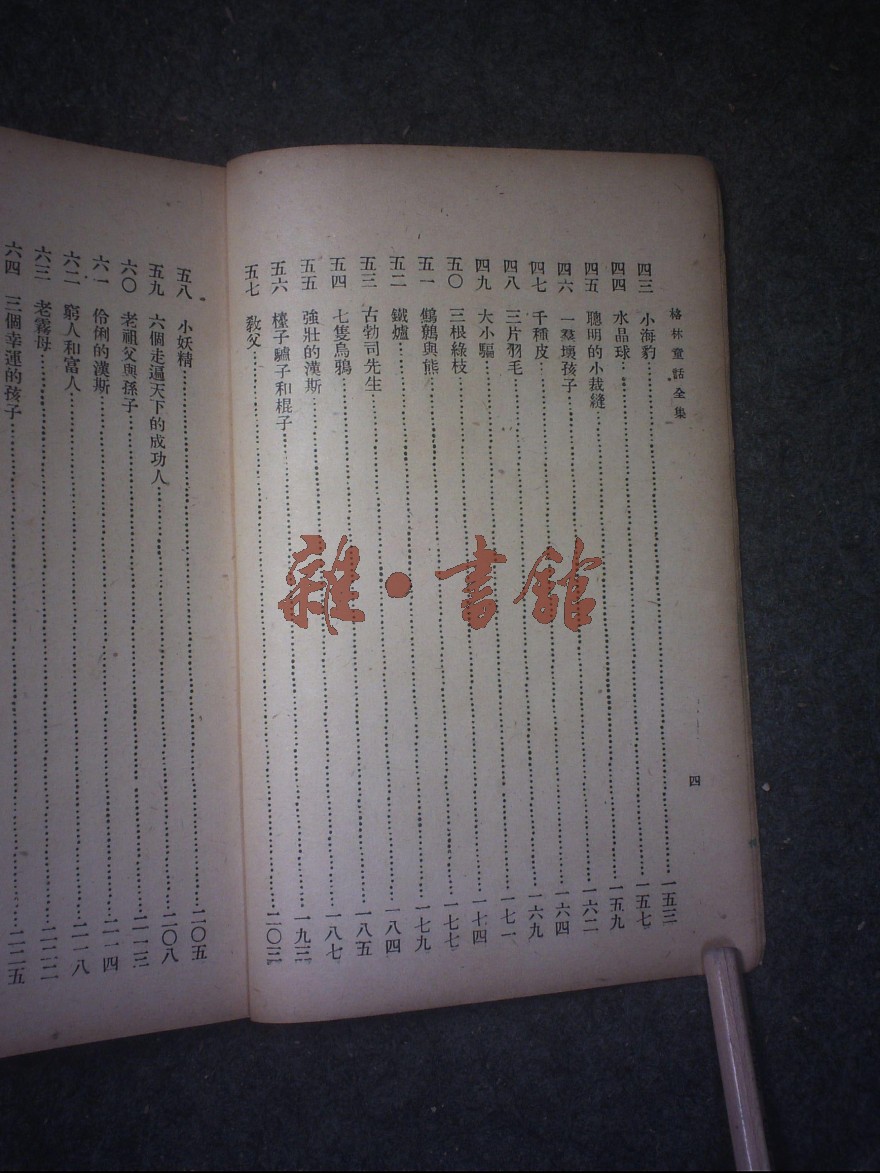 格林童話全集
四三 小海豹……一五三
四四 水晶球……一五七
四五 聰明的小裁縫……一五九
四六 一羣壞孩子……一六二
四七 千種皮……一六四
四八 三片羽毛……一六九
四九 大小騙……一七一
五〇 三根綠枝……一七四
五一 鷦鷯與熊……一七七
五二 鐵爐……一七九
五三 古勃司先生……一八四
五四 七隻烏鴉……一八五
五五 強壯的漢斯……一八七
五六 檯子驢子和棍子……一九三
五七 教父……二〇三
四
五八 小妖精……二〇五
五九 六個走遍天下的成功人……二〇八
六〇 老祖父與孫子……二一三
六一 伶俐的漢斯……二一四
六二 窮人和富人……二一八
六三 老霧母……二二二
六四 三個幸運的孩子……二二五
雜•書館